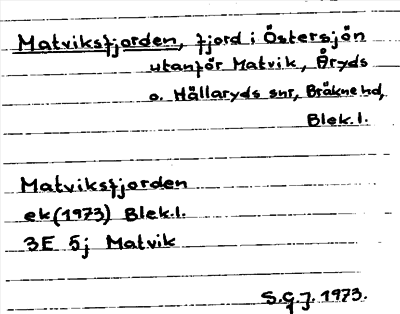 Matviksfjorden, fjord i Östersjön
utanför Matvik, Åryds
o. Hällaryds snr, Bräkne hd,
Blek.l.
Matviksfjorden
ek(1973) Blek.l.
3E 5j Matvik
S.G.J. 1973.